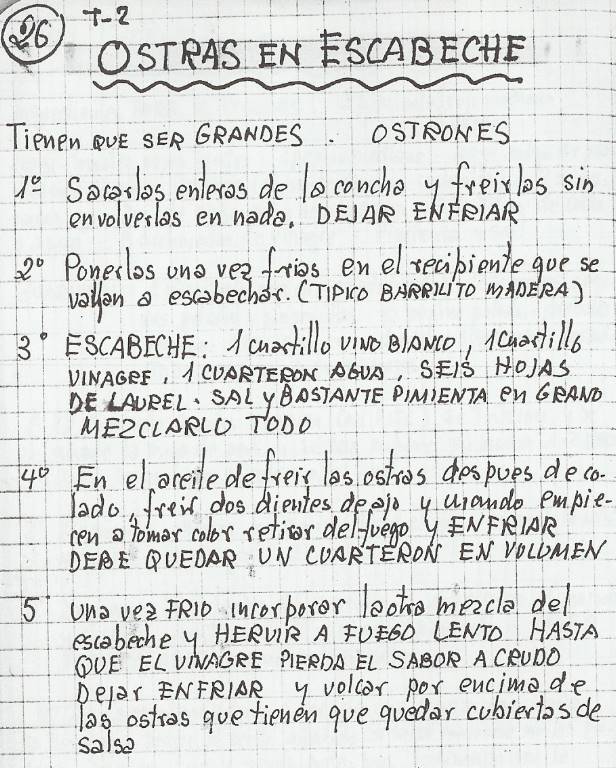 26
T-2
OSTRAS EN ESCABECHE
Tienen QUE SER GRANDES. OSTRONES
1º Sacarlas enteras de la concha y freirlas sin
envolverlas en nada. DEJAR ENFRIAR
2º Ponerlas una vez frias en el recipiente que se
vallan a escabechar. (TIPICO BARRILITO MADERA)
3º ESCABECHE: 1 cuartillo VINO BLANCO, 1 cuartillo
VINAGRE, 1 CUARTERON AGUA, SEIS HOJAS
DE LAUREL. SAL y BASTANTE PIMIENTA en GRANO
MEZCLARLO TODO
4º En el aceite de freir las ostras despues de co-
lado, freir dos dientes de ajo y cuando empie-
cen a tomar color retirar del fuego y ENFRIAR
DEBE QUEDAR UN CUARTERON EN VOLUMEN
5 Una vez FRIO incorporar la otra mezcla del
escabeche y HERVIR A FUEGO LENTO HASTA
QUE EL VINAGRE PIERDA EL SABOR A CRUDO
Dejar ENFRIAR y volcar por encima de
las ostras que tienen que quedar cubiertas de
salsa